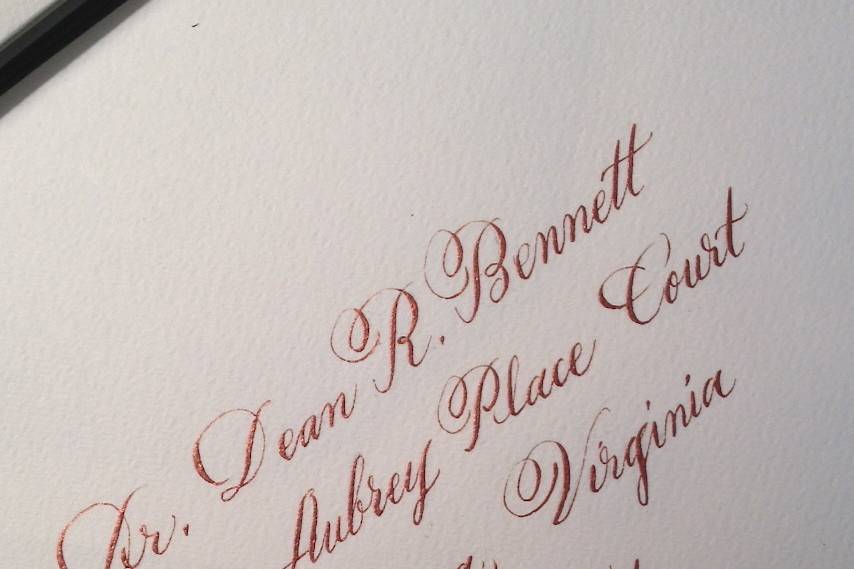 Dr. Dean R. Bennett
Aubrey Place Court
Virginia